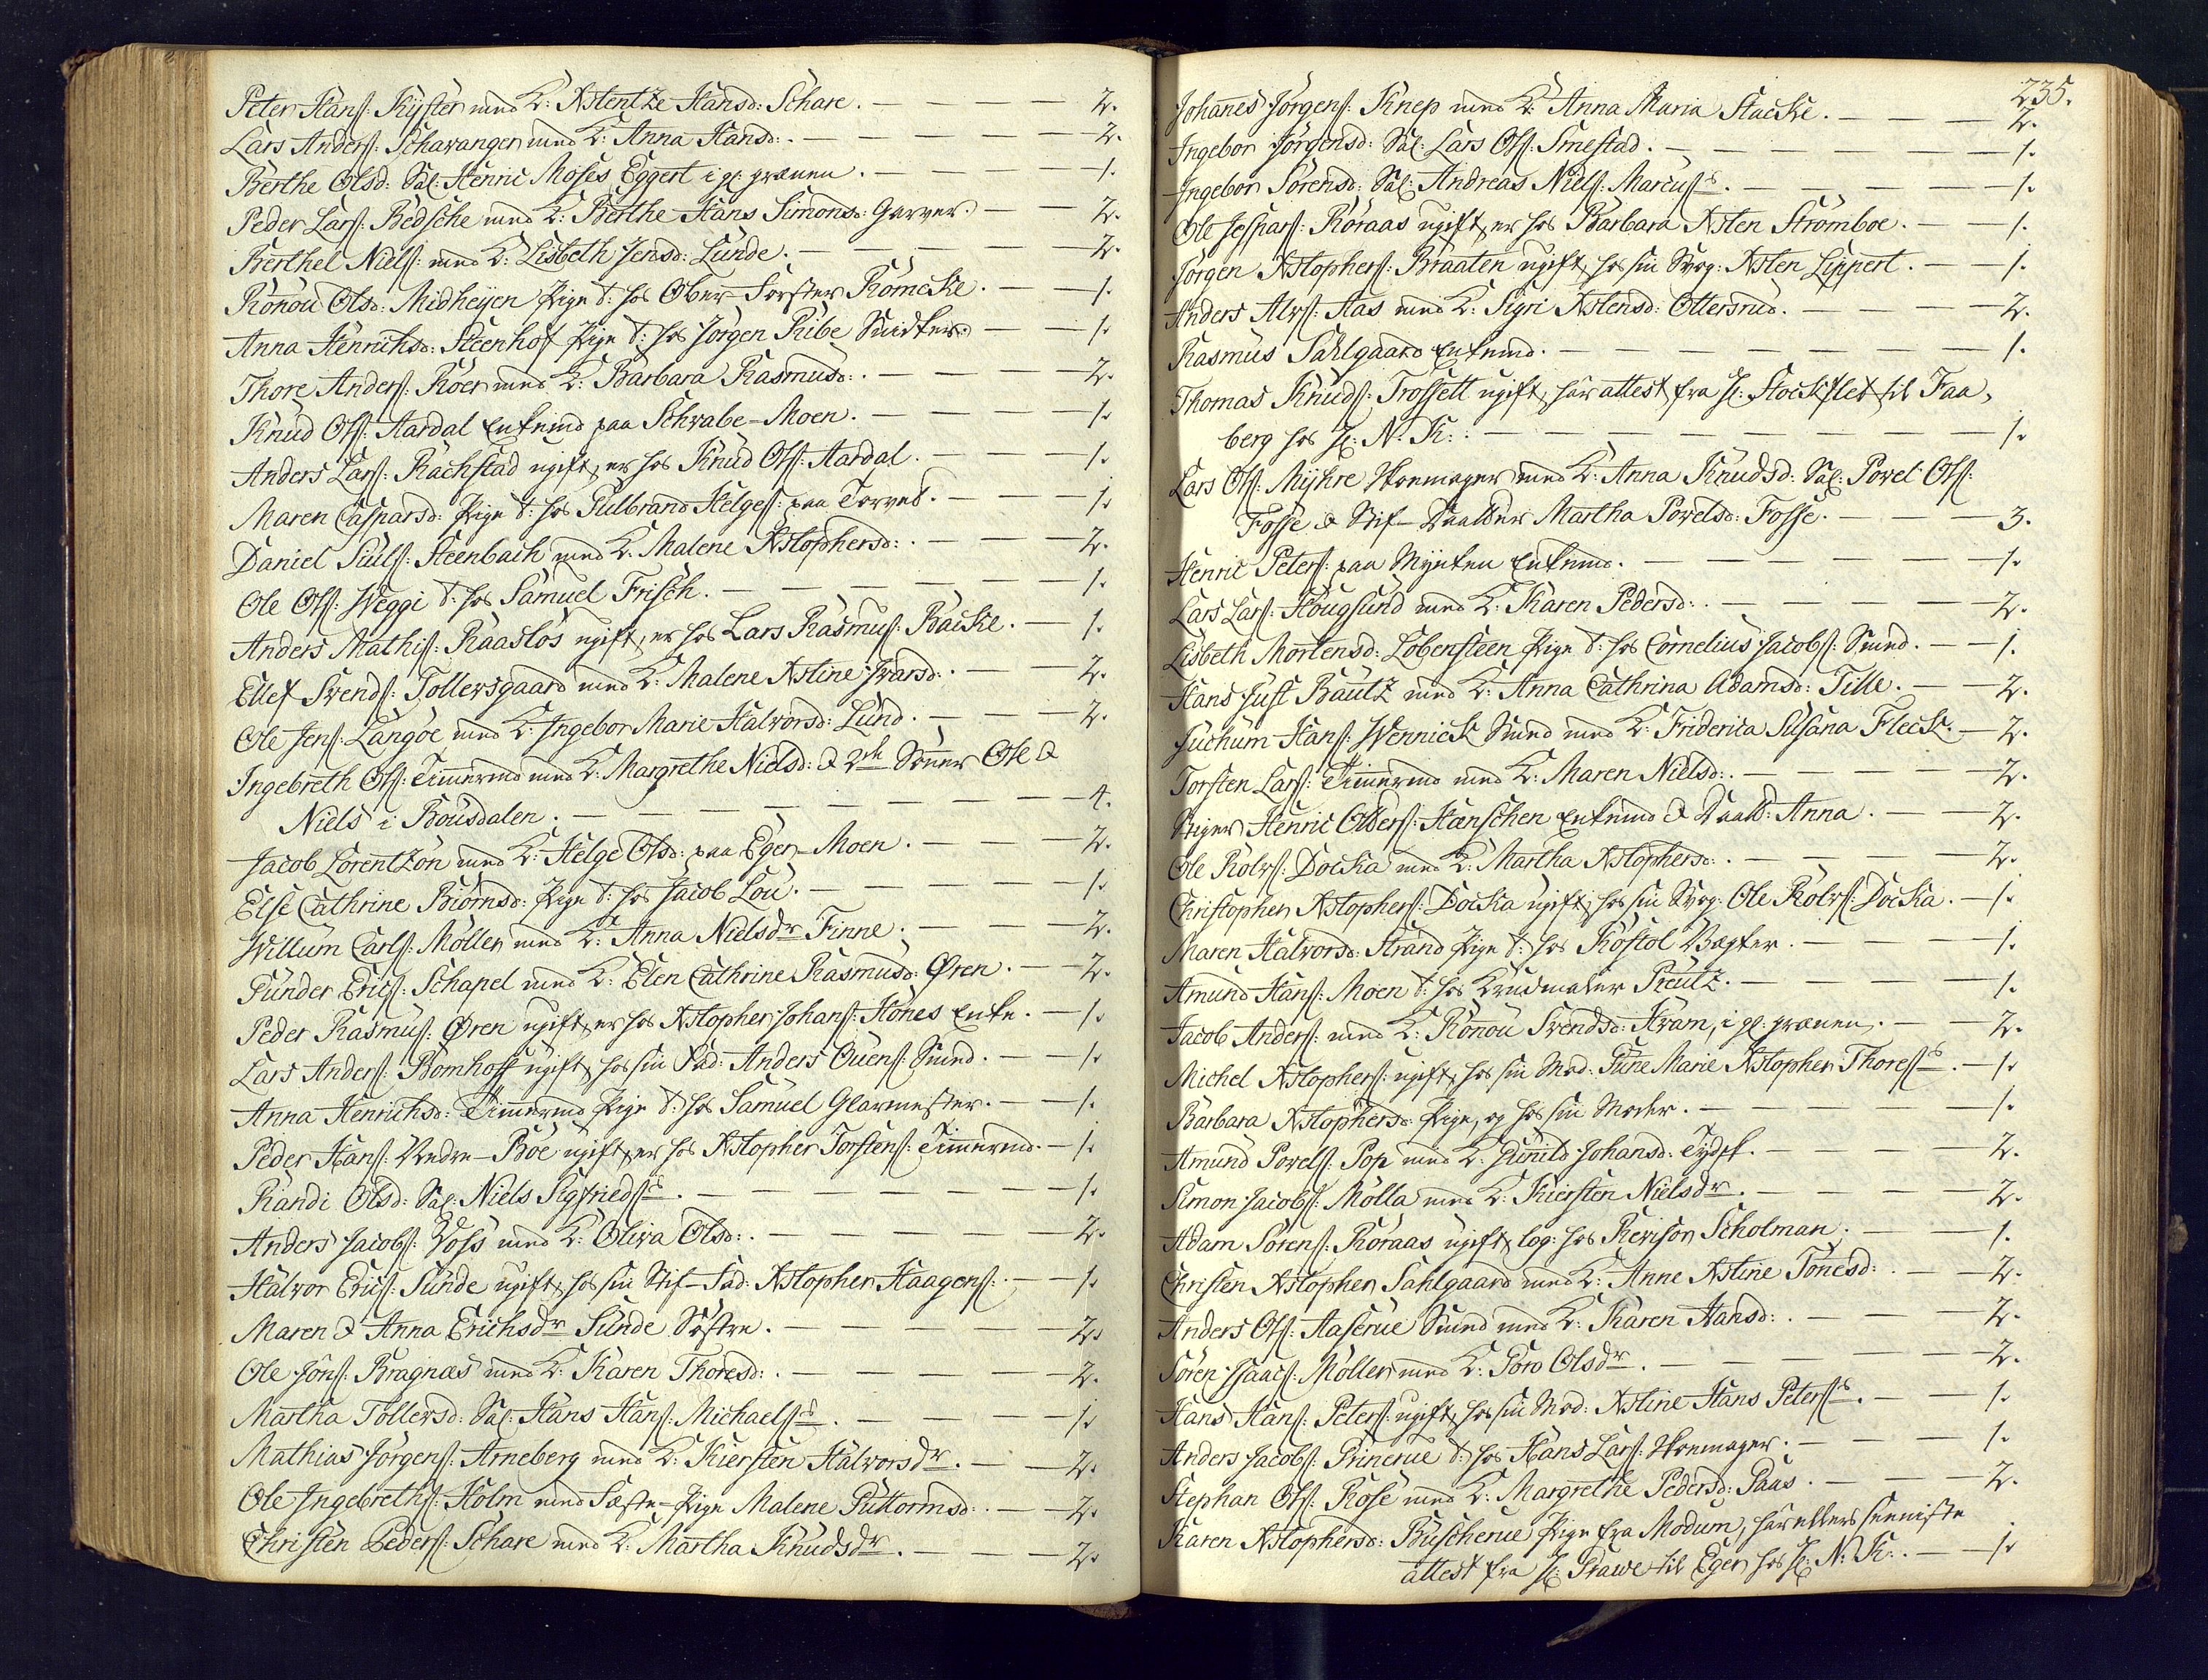 Peter Hans: Kyster med K: Kstentze Hansd: Schare. — 2.
Lars Anders: Schavanger med K: Anna Hansd: — 2.
Berthe Olsd: Sal: Henric Moses Eggert i gl: — 1.
Peder Lars: Bedsche med K: Berthe Hans Simonsd: Garver. — 2.
Berthel Niels: med K: Lisbeth Jensd: Lunde. — 2.
Rönou Olsd: Midheyen Pige t: hos Ober-Forster Römcke. — 1.
Anna Henrichsd: Steenhof Pige t: hos Jörgen Ribe Snidker. — 1.
Thore Anders: Röer med K: Barbara Rasmusd: — 2.
Knud Ols: Aardal Enkemd paa Schwabe-Moen. — 1.
Anders Lars: Rachstad ugift, er hos Knud Ols: Aardal. — 1.
Maren Caspersd: Pige t: hos Gulbrand Helges: paa Torved. — 1.
Daniel Siuls: Steenbach med K: Malene Kstophersd: — 2.
Ole Ols: Weggi t: hos Samuel Frisch. — 1.
Anders Mathis: Raaslös ugift, er hos Lars Rasmus: Backe. — 1.
Ellef Svends: Tollersgaard med K: Malene Kstine Ivarsd: — 2.
Ole Jens: Langöe med K: Ingebor Marie Halvorsd: Lund. — 2.
Ingebreth Ols: Timermd med K: Margrethe Nielsd: & 2de Sönner Ole &
Niels i Bousdalen. — 4.
Jacob Lorentzön med K: Helge Olsd: paa Eger-Moen. — 2.
Else Cathrine Biörnsd: Pige t: hos Jacob Lou. — 1.
Willum Carls: Möller med K: Anna Nielsdr Finne. — 2.
Gunder Erics: Schapel med K: Elen Cathrine Rasmusd: Øren. — 2.
Peder Rasmus: Øren ugift, er hos Kstopher Johans: Hönes Enke. — 1.
Lars Anders: Bomhoff ugift, hos sin Fad: Anders Ouens: Smed. — 1.
Anna Henrichsd: Timermd Pige t: hos Samuel Glarmester. — 1.
Peder Hans: Nedre-Böe ugift, er hos Kstopher Torstens: Timermd. — 1.
Randi Olsd: Sal: Niels Sigfriedss. — 1.
Anders Jacobs: Voss med K: Oliva Olsd: — 2.
Halvor Erics: Sunde ugift, hos sin Stif-Fad: Kstopher Haagens: — 1.
Maren & Anna Erichsdr Sunde Söstre. — 2.
Ole Jöns: Bragnæs med K: Karen Thoresd: — 2.
Martha Tollersd: Sal: Hans Hans: Michaelss. — 1.
Mathias Jörgens: Arneberg med K: Kiersten Halvorsdr. — 2.
Ole Ingebreths: Holm med Fæste-Pige Malene Guttormsd: — 2.
Christen Peders: Schare med K: Martha Knudsdr. — 2.
235.
Johanes Jörgens: Knep med K: Anna Maria Stacke. — 2.
Ingebor Jörgensd: Sal: Lars Ols: Smestad. — 1.
Ingebor Sörensd: Sal: Andreas Niels: Marcuss. — 1.
Ole Jespers: Röraas ugift, er hos Barbara Ksten Strömboe. — 1.
Jörgen Kstophers: Braaten ugift, hos sin Svog: Ksten Lippert. — 1.
Anders Alvs: Aas med K: Sigri Kstensd: Ottersrud. — 2.
Rasmus Sahlgaard Enkemd. — 1.
Thomas Knuds: Trossett ugift, har attest fra H: Stockflet til Faa-
berg hos H: N. K: — 1.
Lars Ols: Myhre Skoemager med K: Anna Knudsd: Sal: Povel Ols:
Fosse & Stif-Daatter Martha Povelsd: Fosse. — 3.
Henric Peters: paa Mynten Enkemd. — 1.
Lars Lars: Hougsund med K: Karen Pedersd: — 2.
Lisbeth Mortensd: Löbensteen Pige t: hos Cornelius Jacobs: Smed. — 1.
Hans Just Bautz med K: Anna Cathrina Adamsd: Tille. — 2.
Juchum Hans: Wennick Smed med K: Friderica Susana Fleck. — 2.
Torsten Lars: Timermd med K: Maren Nielsd: — 2.
Stiger Henric Olders: Hænschen Enkemd & Daatt: Anna. — 2.
Ole Rolvs: Docka med K: Martha Kstophersd: — 2.
Christopher Kstophers: Docka ugift, hos sin Svog: Ole Rolvs: Docka. — 1.
Maren Halvorsd: Strand Pige t: hos Köstöl Vægter. — 1.
Amund Hans: Moen t: hos Krudmaler Reutz. — 1.
Jacob Anders: med K: Rönou Svendsd: Kram, i gl: — 2.
Michel Kstophers: ugift, hos sin Mod: Gune Marie Kstopher Thoress. — 1.
Barbara Kstophersd: Pige, og hos sin Moder. — 1.
Amund Povels: Pop med K: Gunild Johansd: Tydsk. — 2.
Simon Jacobs: Mölla med K: Kiersten Nielsdr. — 2.
Adam Sörens: Röraas ugift, log: hos Revisor Scholman. — 1.
Christen Kstopher Sahlgaard med K: Anne Kstine Tönesd: — 2.
Anders Ols: Aaserue Smed med K: Karen Hansd: — 2.
Sören Isaacs: Möller med K: Goro Olsdr. — 2.
Hans Hans: Peters: ugift, hos sin Mod: Kstine Hans Peterss. — 1.
Anders Jacobs: Prinerue t: hos Hans Lars: Skoemager. — 1.
Stephan Ols: Rose med K: Margrethe Pedersd: Paas. — 2.
Karen Kstophersd: Buscherue Pige fra Modum, har ellers seeniste
attest fra H: Strawe til Eger, hos H: N: K: — 1.